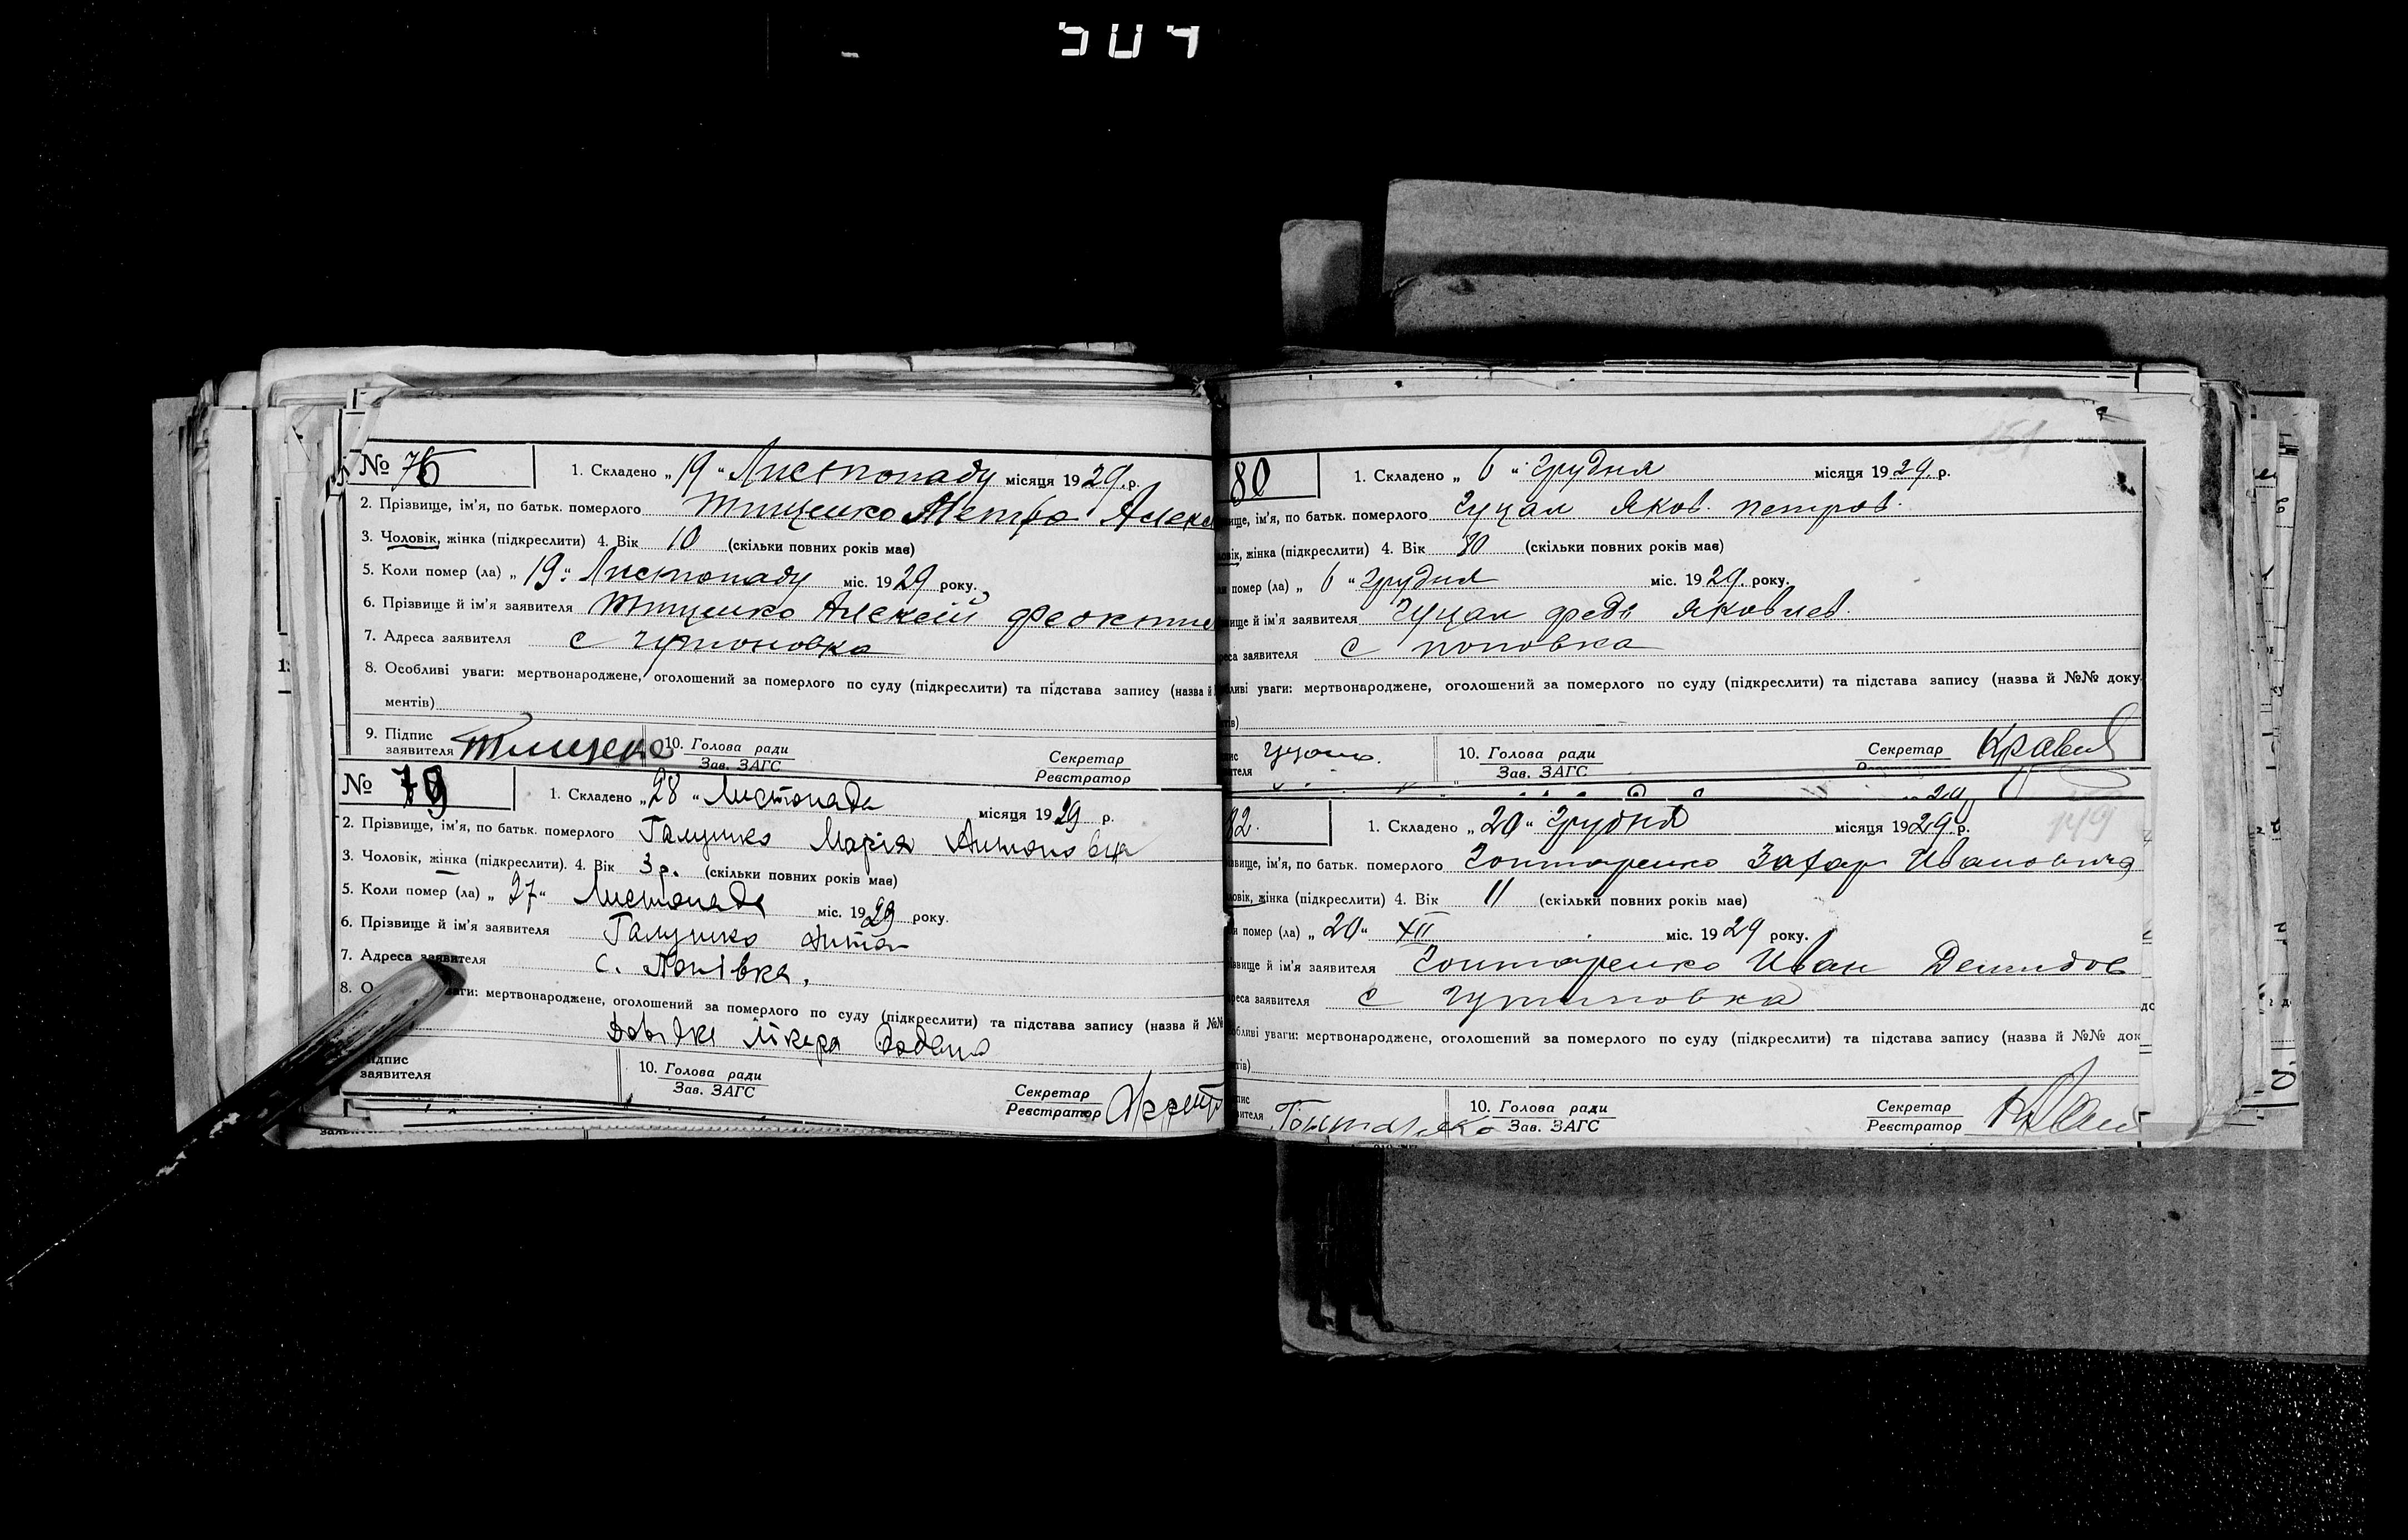 504
№ 76 1. Складено „19“ Листопаду місяця 1929 р.
2. Прізвище, ім'я, по батьк. померлого Тищенко Алекс
3. Чоловік, жінка (підкреслити) 4. Вік 10 (скільки повних років має)
5. Коли помер (ла) „19“ Листопаду міс. 1929 року.
6. Прізвище й ім'я заявителя Тищенко Алексій Феокти
7. Адреса заявителя с
8. Особливі уваги: мертвонароджене, оголошений за померлого по суду (підкреслити) та підстава запису (назва й
ментів)
9. Підпис заявителя Тищенко 10. Голова ради Зав. ЗАГС Секретар Реєстратор
№ 79 1. Складено „28“ Листопада місяця 1929 р.
2. Прізвище, ім'я, по батьк. померлого Галушко Марія Антоновна
3. Чоловік, жінка (підкреслити). 4. Вік 3 р. (скільки повних років має)
5. Коли помер (ла) „27“ Листопада міс. 1929 року.
6. Прізвище й ім'я заявителя Галушко Антон
7. Адреса заявителя с. Попівка.
8. О ваги: мертвонароджене, оголошений за померлого по суду (підкреслити) та підстава запису (назва й №№
лікаря
підпис заявителя 10. Голова ради Зав. ЗАГС Секретар Реєстратор
151
80 1. Складено „6“ Грудня місяця 1929 р.
вище, ім'я, по батьк. померлого Гуцал Яков. Петров.
ловік, жінка (підкреслити) 4. Вік (скільки повних років має)
помер (ла) „6“ Грудня міс. 1929. року.
вище й ім'я заявителя Гуцал Яковлев.
реса заявителя с Поповка
бливі уваги: мертвонароджене, оголошений за померлого по суду (підкреслити) та підстава запису (назва й №№ доку
тів)
пис вителя 10. Голова ради Зав. ЗАГС Секретар
82. 1. Складено „20“ Грудня місяця 1929 р. 149
звище, ім'я, по батьк. померлого Гонтаренко Захар Иванович
ловік, жінка (підкреслити) 4. Вік 11 (скільки повних років має)
и помер (ла) „20“ XII міс. 1929 року.
звище й ім'я заявителя Гонтаренко Иван Демидов
реса заявителя с
обливі уваги: мертвонароджене, оголошений за померлого по суду (підкреслити) та підстава запису (назва й №№ док
нтів)
пис вителя Гонтаренко 10. Голова ради Зав. ЗАГС Секретар Реєстратор